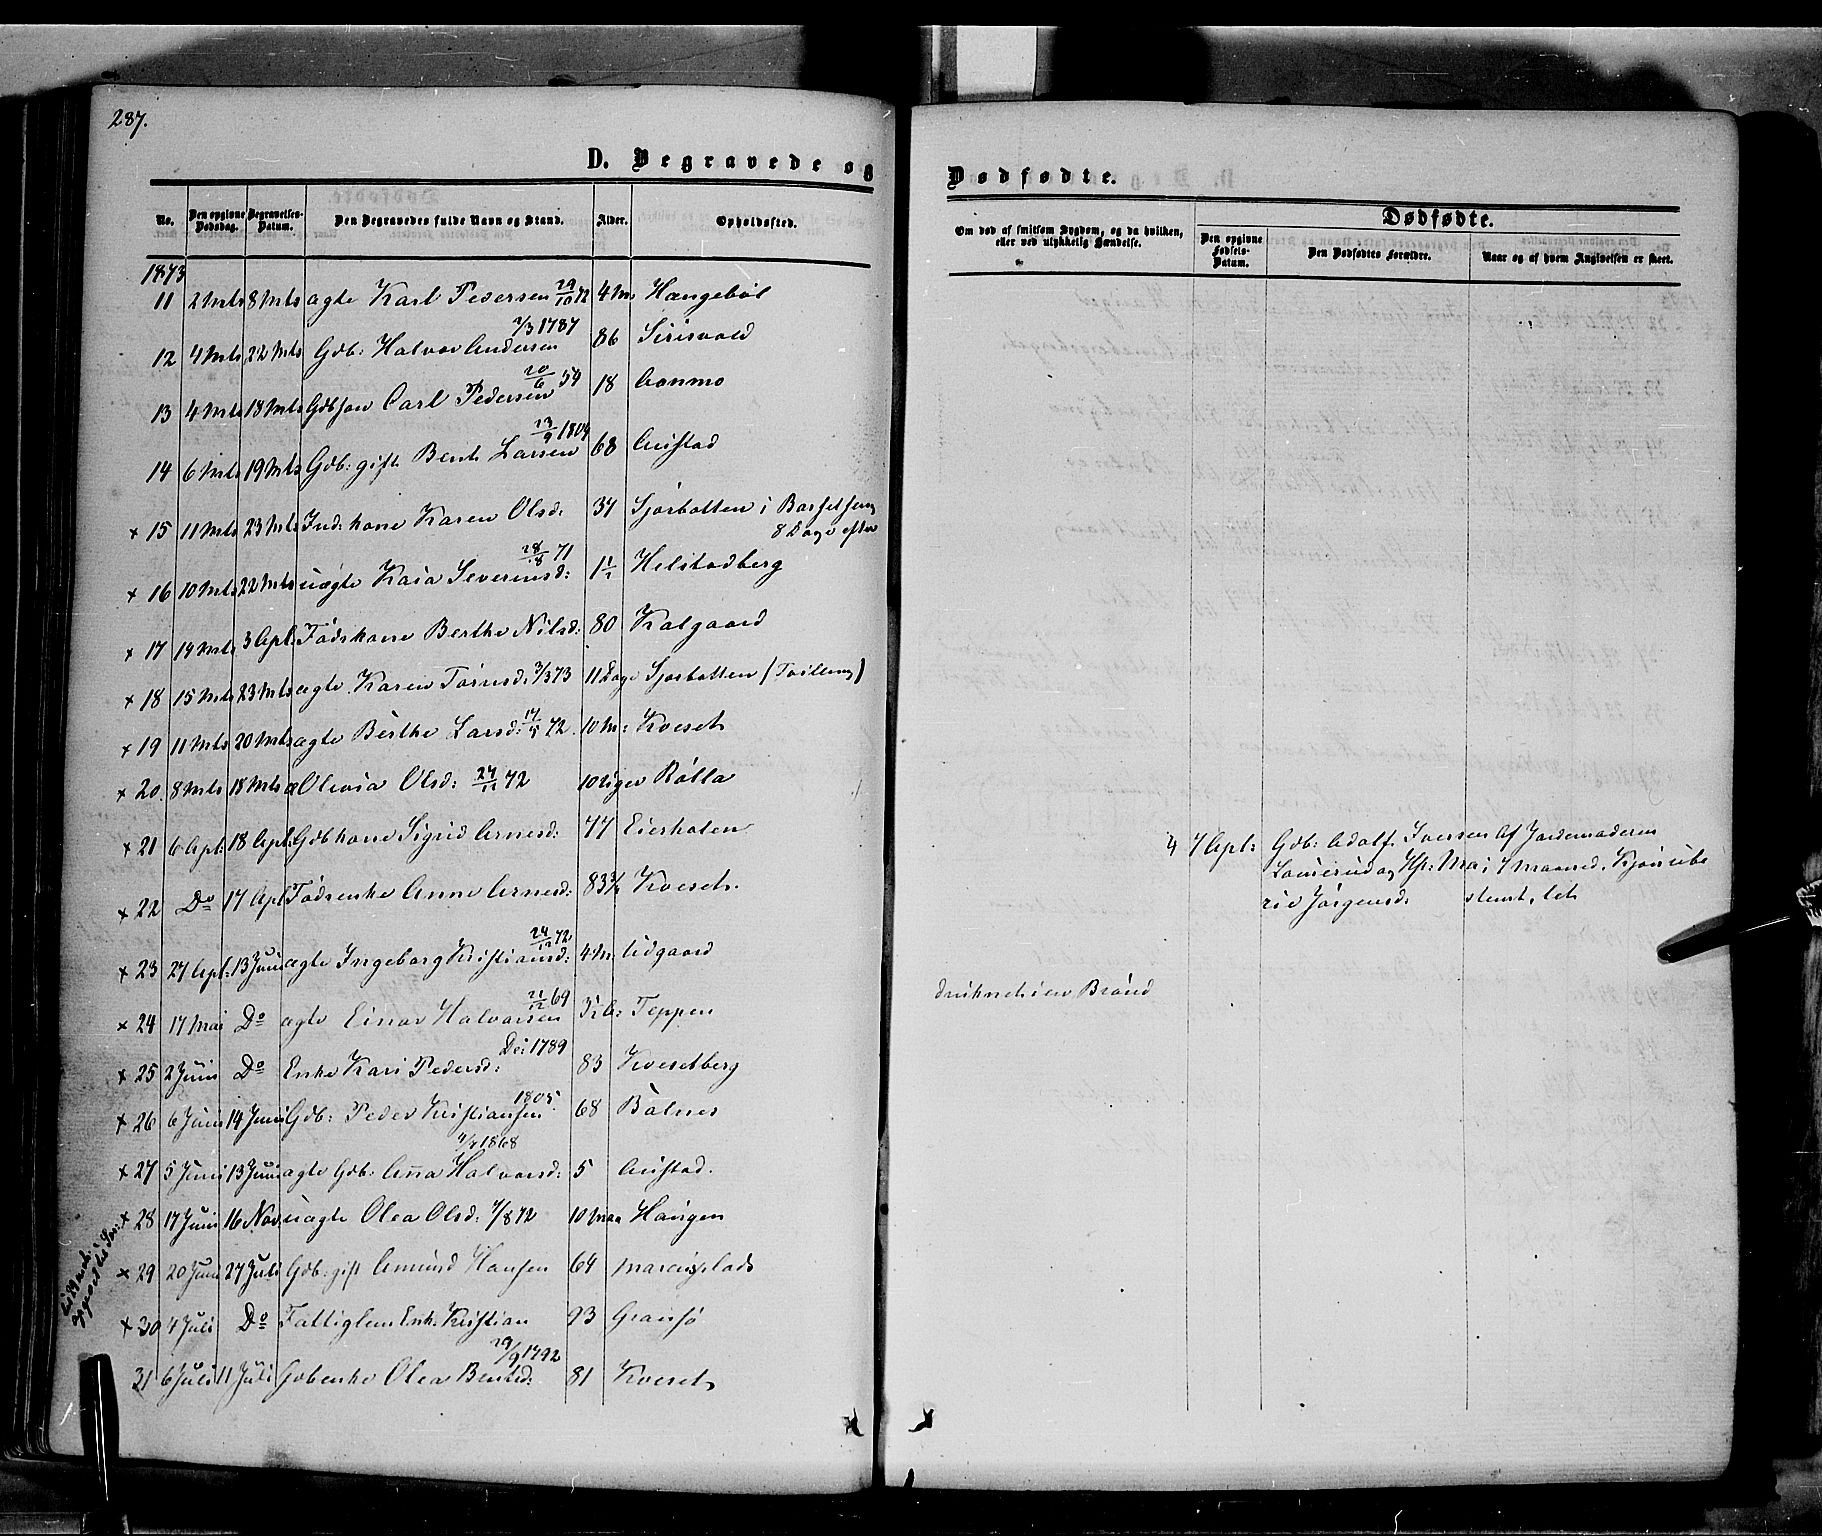 287.
D. Begravede og
No. Den opgivne Dødsdag. Begravelses-Datum. Den Begravedes fulde Navn og Stand. Alder. Opholdssted.
1873
11 2 Mts 8 Mts ægte Karl Pedersen 29/10 72 4 M Hangebøl
12 4 Mts 22 Mts Gdb: Halvor Andersen 2/3 1787 86 Sirisvold
13 4 Mts 18 Mts Gdbsøn Carl Pedersen 20/6 54 18 Aanmo
14 6 Mts 19 Mts Gdb: gift Bent Larsen 23/9 1804 68 Austad
× 15 11 Mts 23 Mts Ind: kone Karen Olsd: 37 Sjørbotten i Barselseng
8 Dage efter
× 16 10 Mts 22 Mts uægte Kaia Severinsd: 28/8 71 1½ Helstadberg
× 17 19 Mts 3 Apl Føds kone Berthe Nilsd: 80 Kalgaard
× 18 15 Mts 23 Mts ægte Karen Torinsd: 3/3 73 11 Dage Sjørbotten (Tvilling)
× 19 11 Mts 20 Mts ægte Berthe Larsd: 17/5 72 10 M: Kveset
× 20 8 Mts 18 Mts æ Olevia Olsd: 27/12 72 10 Uger Bølla
× 21 6 Apl: 18 Apl: Gdbkone Sigrid Arnesd: 77 Eierholen
× 22 Do 17 Apl Fødsenke Anne Arnesd: 83¾ Kveset.
× 23 27 Apl: 13 Juni ægte Ingeborg Kristiansd: 24/12 72 4 M. Udgaard
× 24 17 Mai Do ægte Einar Halvorsen 21/12 69 3½ A: Teppen
× 25 2 Juni Do Enke Kari Pedersd: De: 1789 83 Kvesetberg
× 26 6 Juni 14 Juni Gdb: Peder Kristiansen 1805 68 Bølnes
× 27 5 Juni 13 Juni ægte Gdb: Anna Halvorsd: 4/7 1868 5 Austad.
× 28 17 Juni 16 Nov. uægte Olea Olsd: 7/8 72 10 Maa Haugen
× 29 20 Juni 27 Juli Gdb: gift Amund Hansen 64 Marcusplads
× 30 4 Juli Do Fattiglem Enk: Kristian 93 Gransjø
31 6 Juli 11 Juli Gdbenke Olea Bentsd: 29/9 1792 81 Kveset
Dødfødte.
Om død af smitsom Sygdom, og da hvilken, eller ved ulykkelig Hændelse.
Dødfødte.
Den opgivne Fødsels-Datum. Den Dødfødtes Forældre. Naar og af hvem Angivelsen er skeet.
4 7 Apl: Gdb: Adolf Iversen Af Jordemoderen
Lomerud og Hs: Ma- i 7 Maaned. Kjøn ube
rie Jørgensd: stemt, let
druknet i en Brønd